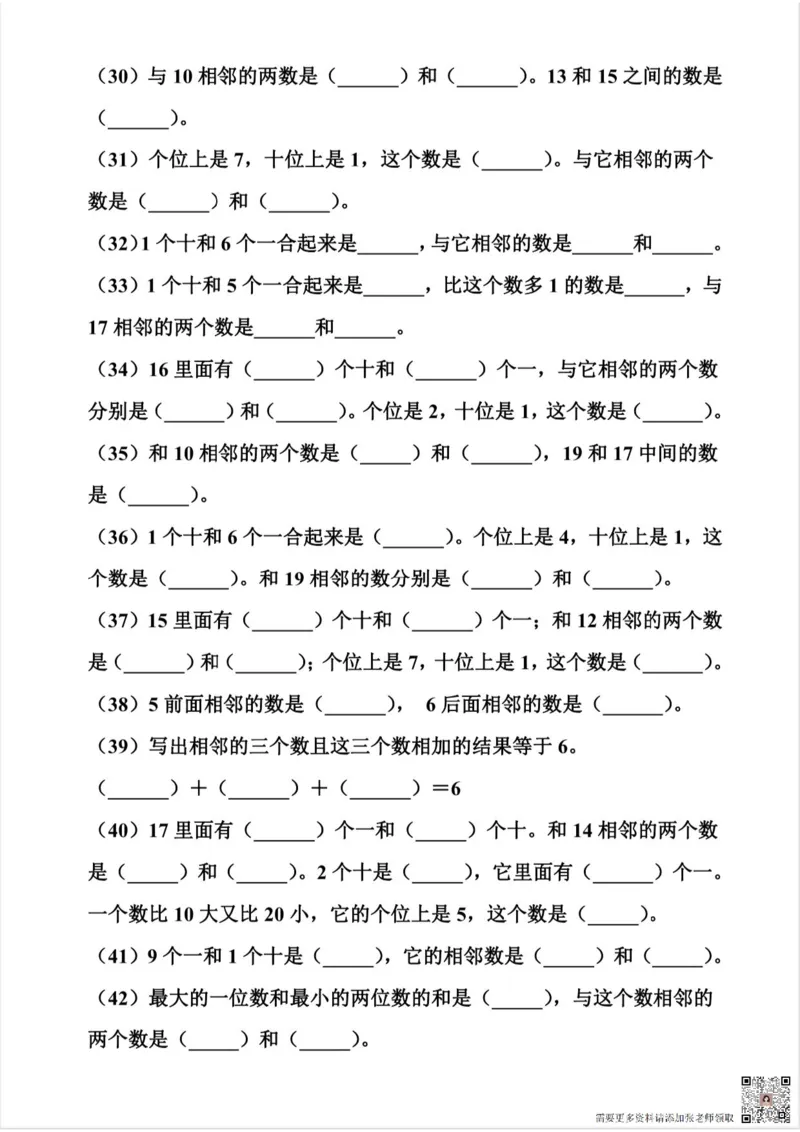 （30）与 10 相邻的两数是（______）和（______）。13 和 15 之间的数是
（______）。
（31）个位上是 7，十位上是 1，这个数是（______）。与它相邻的两个
数是（______）和（______）。
（32）1 个十和 6 个一合起来是______，与它相邻的数是______和______。
（33）1 个十和 5 个一合起来是______，比这个数多 1 的数是______，与
17 相邻的两个数是______和______。
（34）16 里面有（______）个十和（______）个一，与它相邻的两个数
分别是（______）和（______）。个位是 2，十位是 1，这个数是（______）。
（35）和 10 相邻的两个数是（_____）和（______），19 和 17 中间的数
是（______）。
（36）1 个十和 6 个一合起来是（______）。个位上是 4，十位上是 1，这
个数是（______）。和 19 相邻的数分别是（______）和（______）。
（37）15 里面有（______）个十和（______）个一；和 12 相邻的两个数
是（______）和（______）；个位上是 7，十位上是 1，这个数是（______）。
（38）5 前面相邻的数是（______）， 6 后面相邻的数是（______）。
（39）写出相邻的三个数且这三个数相加的结果等于 6。
（______）＋（______）＋（______）＝6
（40）17 里面有（______）个一和（_____）个十。和 14 相邻的两个数
是（_____）和（_____）。2 个十是（_____），它里面有（______）个一。
一个数比 10 大又比 20 小，它的个位上是 5，这个数是（_____）。
（41）9 个一和 1 个十是（_____），它的相邻数是（_____）和（_____）。
（42）最大的一位数和最小的两位数的和是（_____），与这个数相邻的
两个数是（_____）和（_____）。
需要更多资料请添加张老师领取